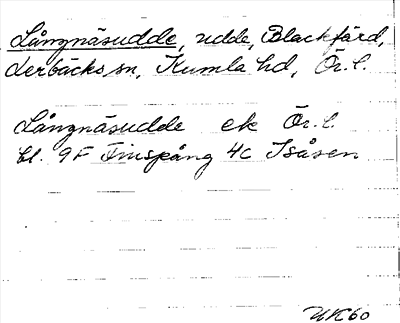 Långnäsudde, udde, Blackfärd,
Lerbäcks sn, Kumla hd, Ör. l.
Långnäsudde ek Ör. l.
bl. 9F Finspång 4c Isåsen
UK60